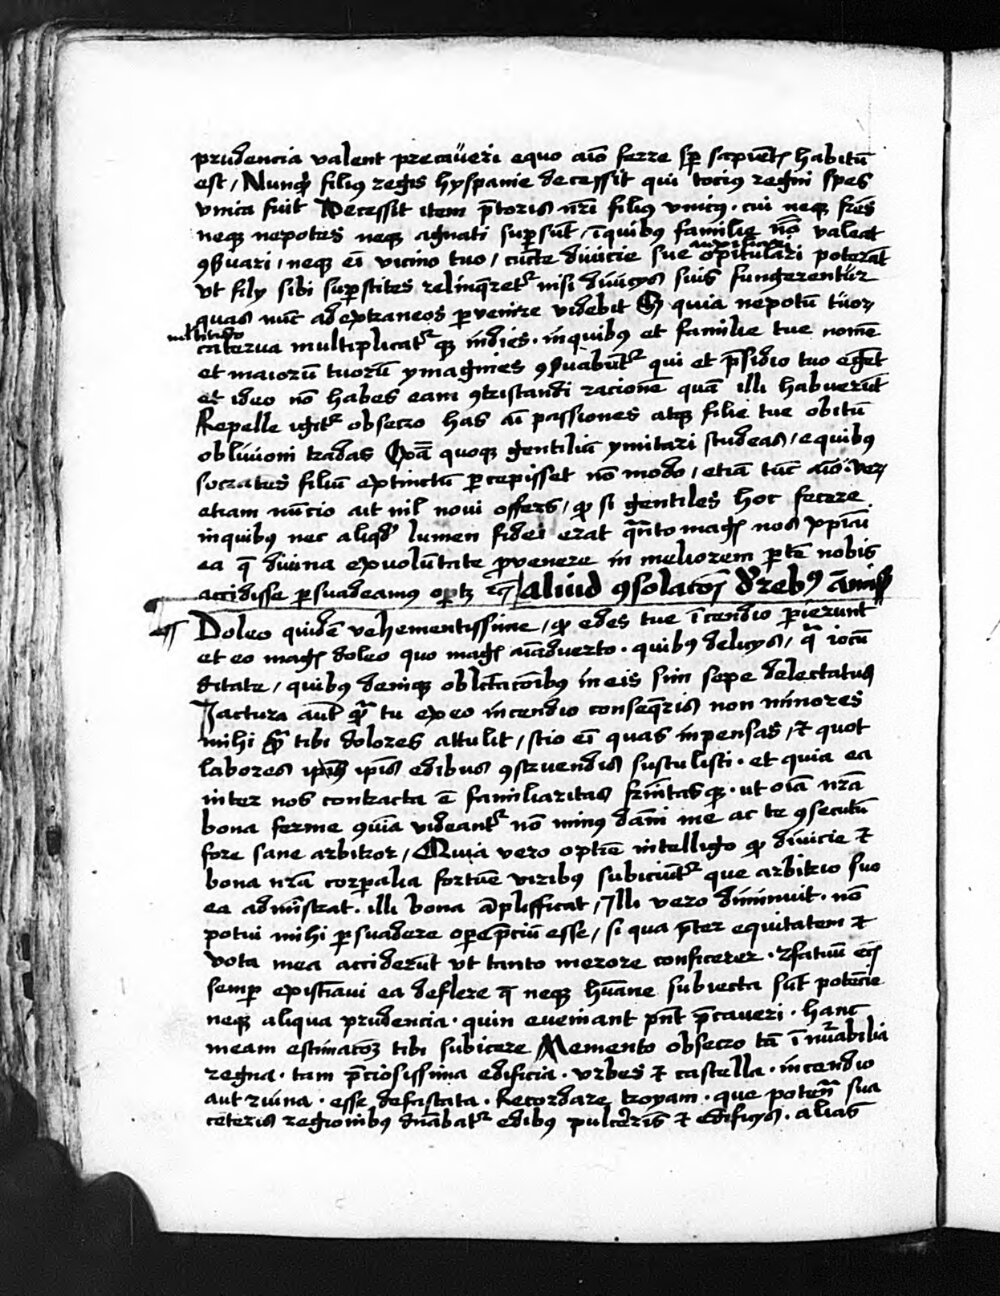 prudencia valent precaveri equo aĩo ferre sp̱ sapient̃ habitũ
est / Nunq̃ filiꝰ regis hyspanie decessit qui tociꝰ regni spes
vnica fuit Decessit item p̃toris nr̃i filiꝰ vnicꝰ · cui neqꝫ fr̃es
neqꝫ nepotes neqꝫ agnati sup̱sũt / ĩ quibꝰ familie nõ valeat
ꝯs̃uari / neqꝫ eĩ vicino tuo / cũcte diuicie sue opitulari poterãt
vt filÿ sibi sup̱stites relinq̃retʳ nisi diuicÿs suis fungerentur
quas nũc ad extraneos p̱venire videbit Et quia nepotũ tuoꝝ
multitudo
caterua multiplicatʳ qꝫ indies · in quibꝰ et familie tue nomẽ
et maiorũ tuorũ ymagines ꝯs̃uabũtʳ qui et p̃sidio tuo eg̃et
et ideo nõ habes eam ꝯtristandi racionẽ quã illi habuerũt
Repelle igitʳ obsecro has aĩ passiones atqꝫ filie tue obitũ
obliuioni tradas Quã quoqꝫ gentiliũ ymitari studeas / e quibꝰ
socrates filiũ extinctũ p̱cepisset nõ modo / etiã tũc aĩo
etiam nũcio ait nil novi offers / ꝙ si gentiles hoc fecere
in quibꝰ nec aliqd̃ lumen fidei erat q̃nto mag̃ nos xp̃iãi
ea q̃ diuina ex volũtate p̱venere in meliorem p̱tẽ nobis
accidisse p̱suadeamus op̱tꝫ aliud ꝯsolatoñ d̃ rebꝰ ãmissꝭ
Doleo quidẽ vehementissime / ꝙ edes tue ĩcendio p̱ierunt
et eo mag̃ doleo quo mag̃ aĩaduerto · quibꝰ delicÿs / q̃ iocũ
ditate / quibꝰ deniqꝫ oblectacõibꝰ in eis sim sepe delectatus
Jactura aut̃ q̃ tu ex eo incendio conseq̃ris non minores
mihi q̃ tibi dolores attulit / scio eĩ quas inpensas / et quot
labores ip̃is edibus ꝯstruendis sustulisti · et quia ea
inter nos contracta ẽ familiaritas fr̃nitasqꝫ · ut oĩa nr̃a
bona ferme ꝯũia videantʳ nõ minꝰ dãni me ac te ꝯsecutũ
fore sane arbitror / Quia vero optĩe intelligo ꝙ diuicie et
bona nr̃a corp̱alia fortũe viribꝰ subiciũtʳ que arbitrio suo
ea admĩstrat · illi bona ãplifficat / Illi vero diminuit · nõ
potui mihi p̱suadere opep̃ciũ esse / si qua p̃ter equitatem et
vota mea acciderũt vt tanto merore conficerer ·
semp̱ existĩaui ea deflere q̃ neqꝫ hũane subiecta sũt potẽcie
neqꝫ aliqua prudencia · quin eveniant pñt p̃caueri · hanc
meam estimacoẽꝫ tibi subicere Memento obsecro tã ĩnũabilia
regna · tam p̃ciosissima edificia · vrbes et castella · incendio
aut ruina · esse deuastata · Recordare troyam · que potenc̃ sua
ceteris regionibꝰ dñabatʳ edibꝰ pulcẽris et edificÿs · alias